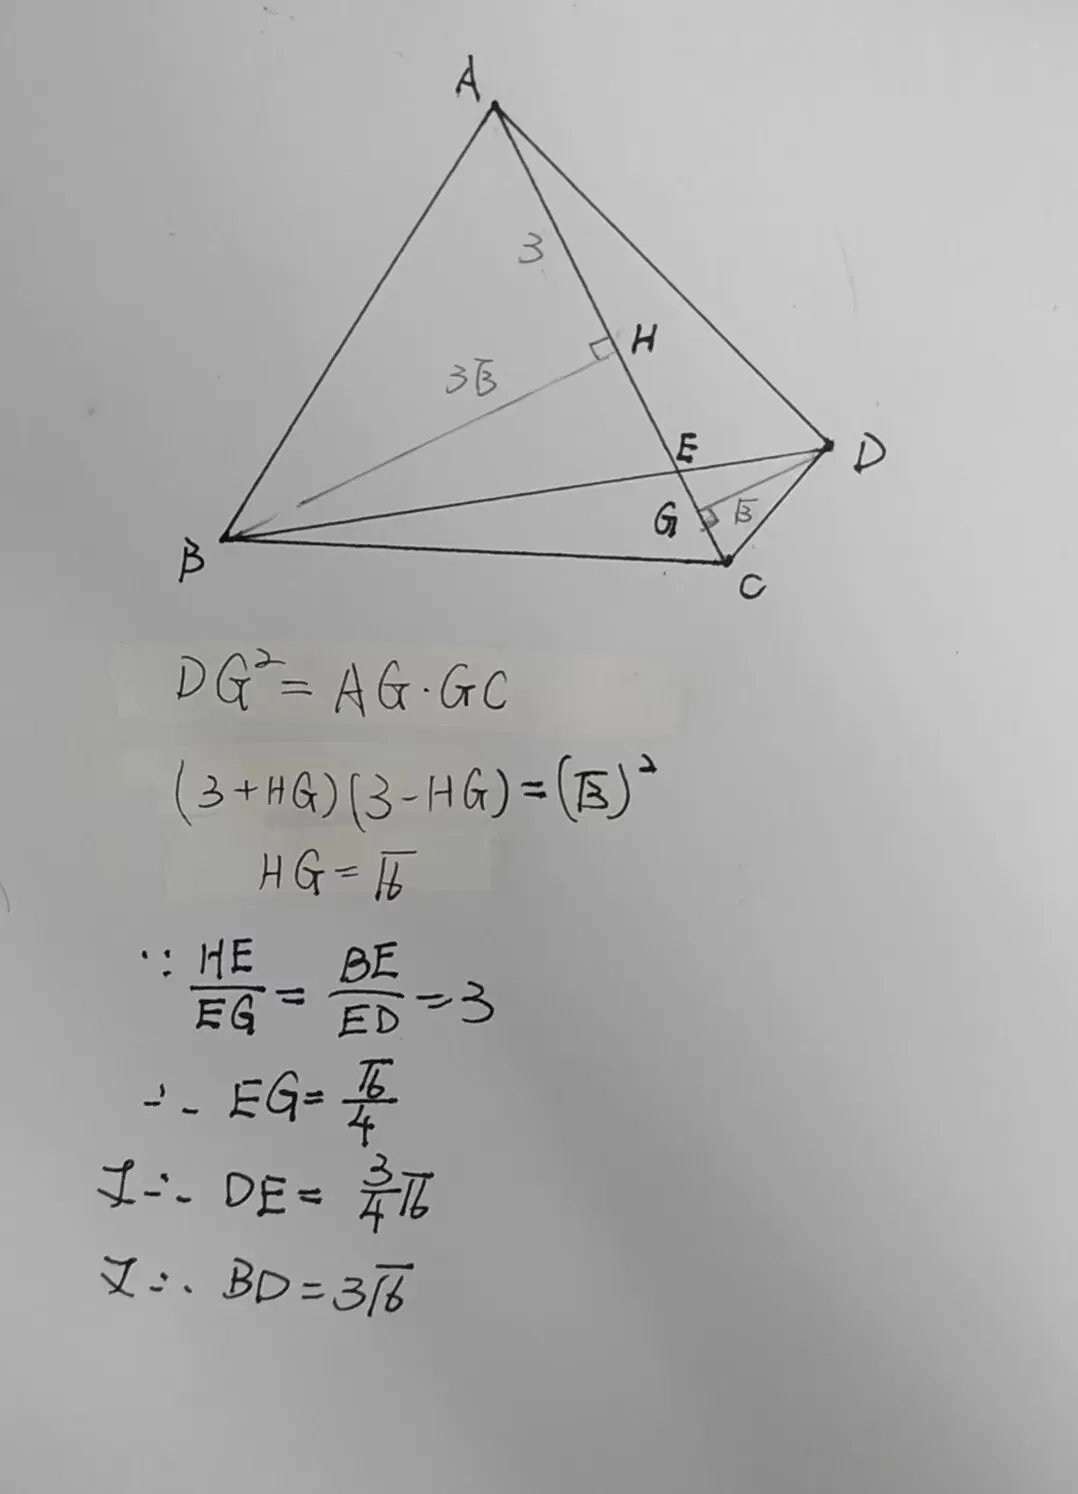 A
3
H
3√3
E
D
G
√3
B
C
DG²= AG·GC
(3+HG)(3-HG)=(√3)²
HG=√6
∵ HE/EG = BE/ED =3
∴ EG= √6/4
又∴ DE= 3/4√6
又∴ BD=3√6